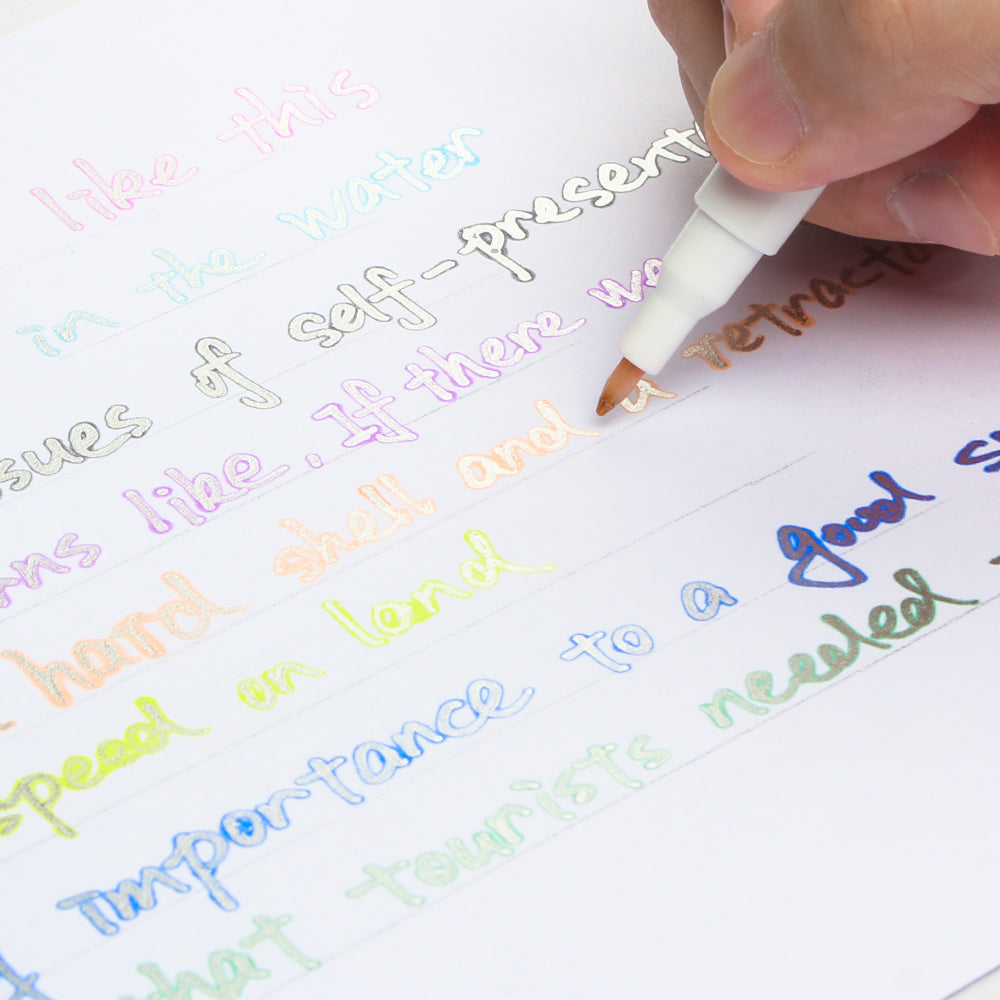 like this
in the water
ssues of self-present
ns like, If there wa
hard shell and a retracta
speed on land
importance to a good su
what tourists needed